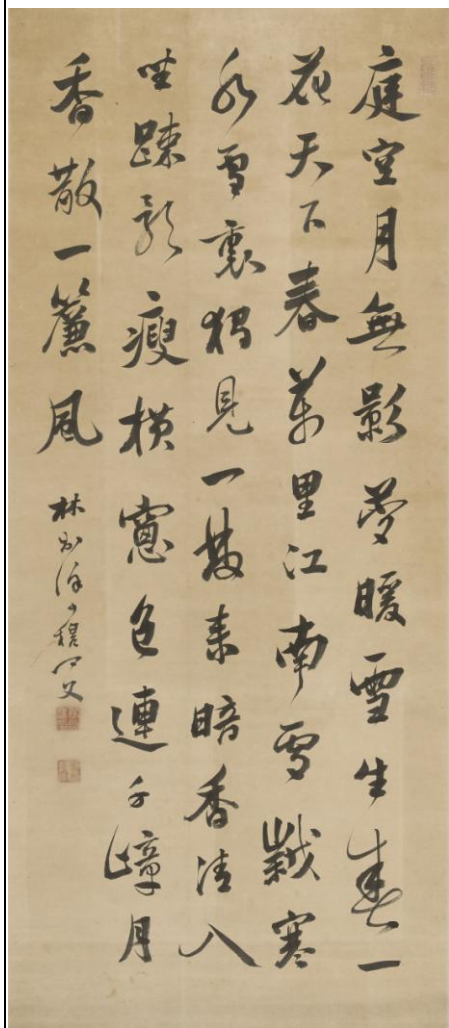 庭空月無影夢暖雪生香一
花天下春萬里江南雪歲寒
冰雪裏獨見一枝來暗香清入
坐疎影瘦橫窓色連千嶂月
香散一簾風